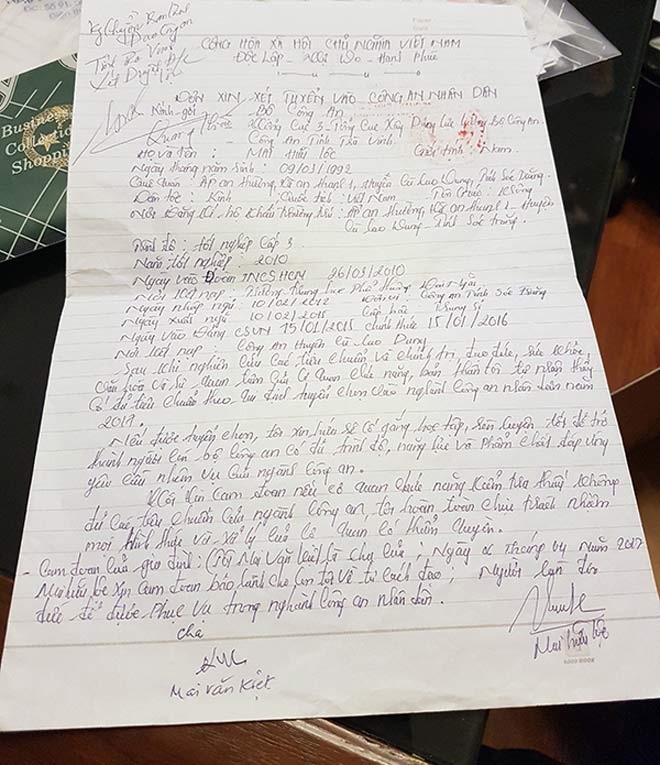 Business
Collection
Shopping
Kg Chuyển
CỘNG HÒA XÃ HỘI CHỦ NGHĨA VIỆT NAM
Độc Lập - Tự Do - Hạnh Phúc
ĐƠN XIN XÉT TUYỂN VÀO CÔNG AN NHÂN DÂN
Kính gởi - Bộ Công An
Cục 3 - Tổng Cục Xây Dựng Lực Lượng Bộ Công An
- Công An Tỉnh Trà Vinh
Họ và tên : MAI HỮU LỘC Giới tính : Nam
Ngày tháng năm sinh : 09/03/1992
Quê Quán : ẤP an thường, Xã an thạnh 1, Huyện Cù Lao Dung, Tỉnh Sóc Trăng.
Dân tộc : Kinh Quốc tịch : Việt Nam Tôn Giáo : Không
Nơi đăng kí hộ khẩu thường trú : ẤP an thường Xã an thạnh 1 - Huyện
Cù lao Dung - Tỉnh Sóc trăng.
Trình độ : tốt nghiệp cấp 3
Năm tốt nghiệp : 2010
Ngày vào Đoàn TNCS.HCM 26/03/2010
Nơi kết nạp : Trường Trung học Phổ thông
Ngày nhập ngũ : 10/02/2012 Đơn vị : Công An Tỉnh Sóc Trăng
Ngày xuất ngũ : 10/02/2015 Cấp bậc
Ngày vào Đảng CSVN 15/01/2015 chính thức 15/01/2016
Nơi kết nạp : Công An Huyện Cù Lao Dung
Sau khi nghiên cứu các tiêu chuẩn về chính trị, đạo đức, sức khỏe
văn hóa và sự quan tâm của cơ quan chức năng, bản thân tôi tự nhận thấy
có đủ tiêu chuẩn theo qui định tuyển chọn vào nghành Công an nhân dân năm
2017.
Nếu được tuyển chọn, tôi xin hứa sẽ cố gắng học tập, rèn luyện tốt để trở
thành người cán bộ công an có đủ trình độ, năng lực và Phẩm chất đáp ứng
yêu cầu nhiệm vụ của ngành công an.
Tôi xin cam đoan nếu cơ quan chức năng kiểm tra thấy không
đủ các tiêu chuẩn của ngành công an, tôi hoàn toàn chịu trách nhiệm
mọi hình thức và xử lý của cơ quan có thẩm quyền.
- Cam đoan của gia đình : (Tôi Mai Văn Kiệt) là cha của ; Ngày tháng năm 2017
Mai Hữu Lộc Xin cam đoan bảo lãnh cho con tôi về tư cách đạo ; Người làm đơn
đức để được Phục vụ trong nghành Công an nhân dân.
cha
Mai Văn Kiệt
Mai Hữu Lộc